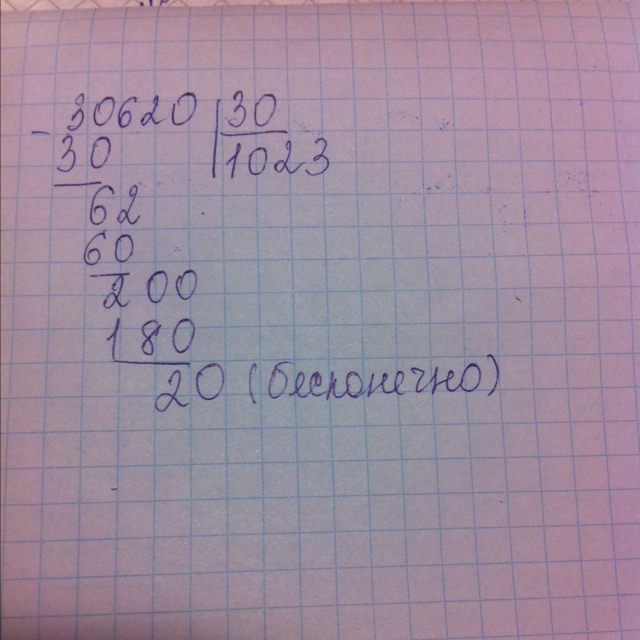 - 30620 | 30
30 | 1023
62
60
200
180
20 (бесконечно)